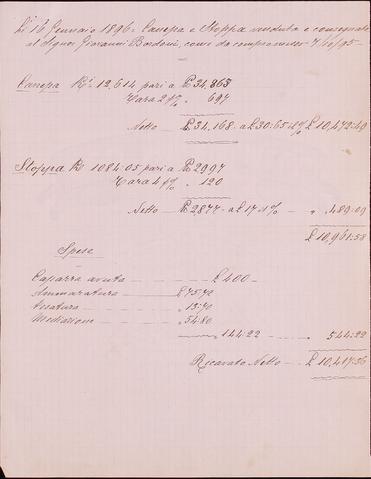 Lì 16 Gennaio 1896 - Canepa e Stoppa venduta e consegnata
al Signor Giovanni Bordoni, come da compromesso 7/10/95
Canepa K.i 12,614 pari a ₤ 34.865
Tara 2 p% " 697
Netto ₤ 34.168 a £ 30:65 il % £ 10,472:49
Stoppa K 1084:05 pari a ₤ 2997
Tara 4 p% " 120
Netto ₤ 2877 - a £ 17 il % " 489:09
£ 10,961:58
Spese
Caparra avuta £ 400 -
Ammaratura £ 75:72
Pesatura " 13:70
Mediazione " 54:80
" 144:22 " 544:22
Ricavato Netto £ 10,417:36